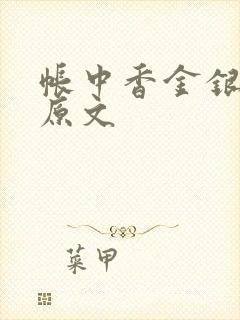 帐中香金银
原文
菜甲